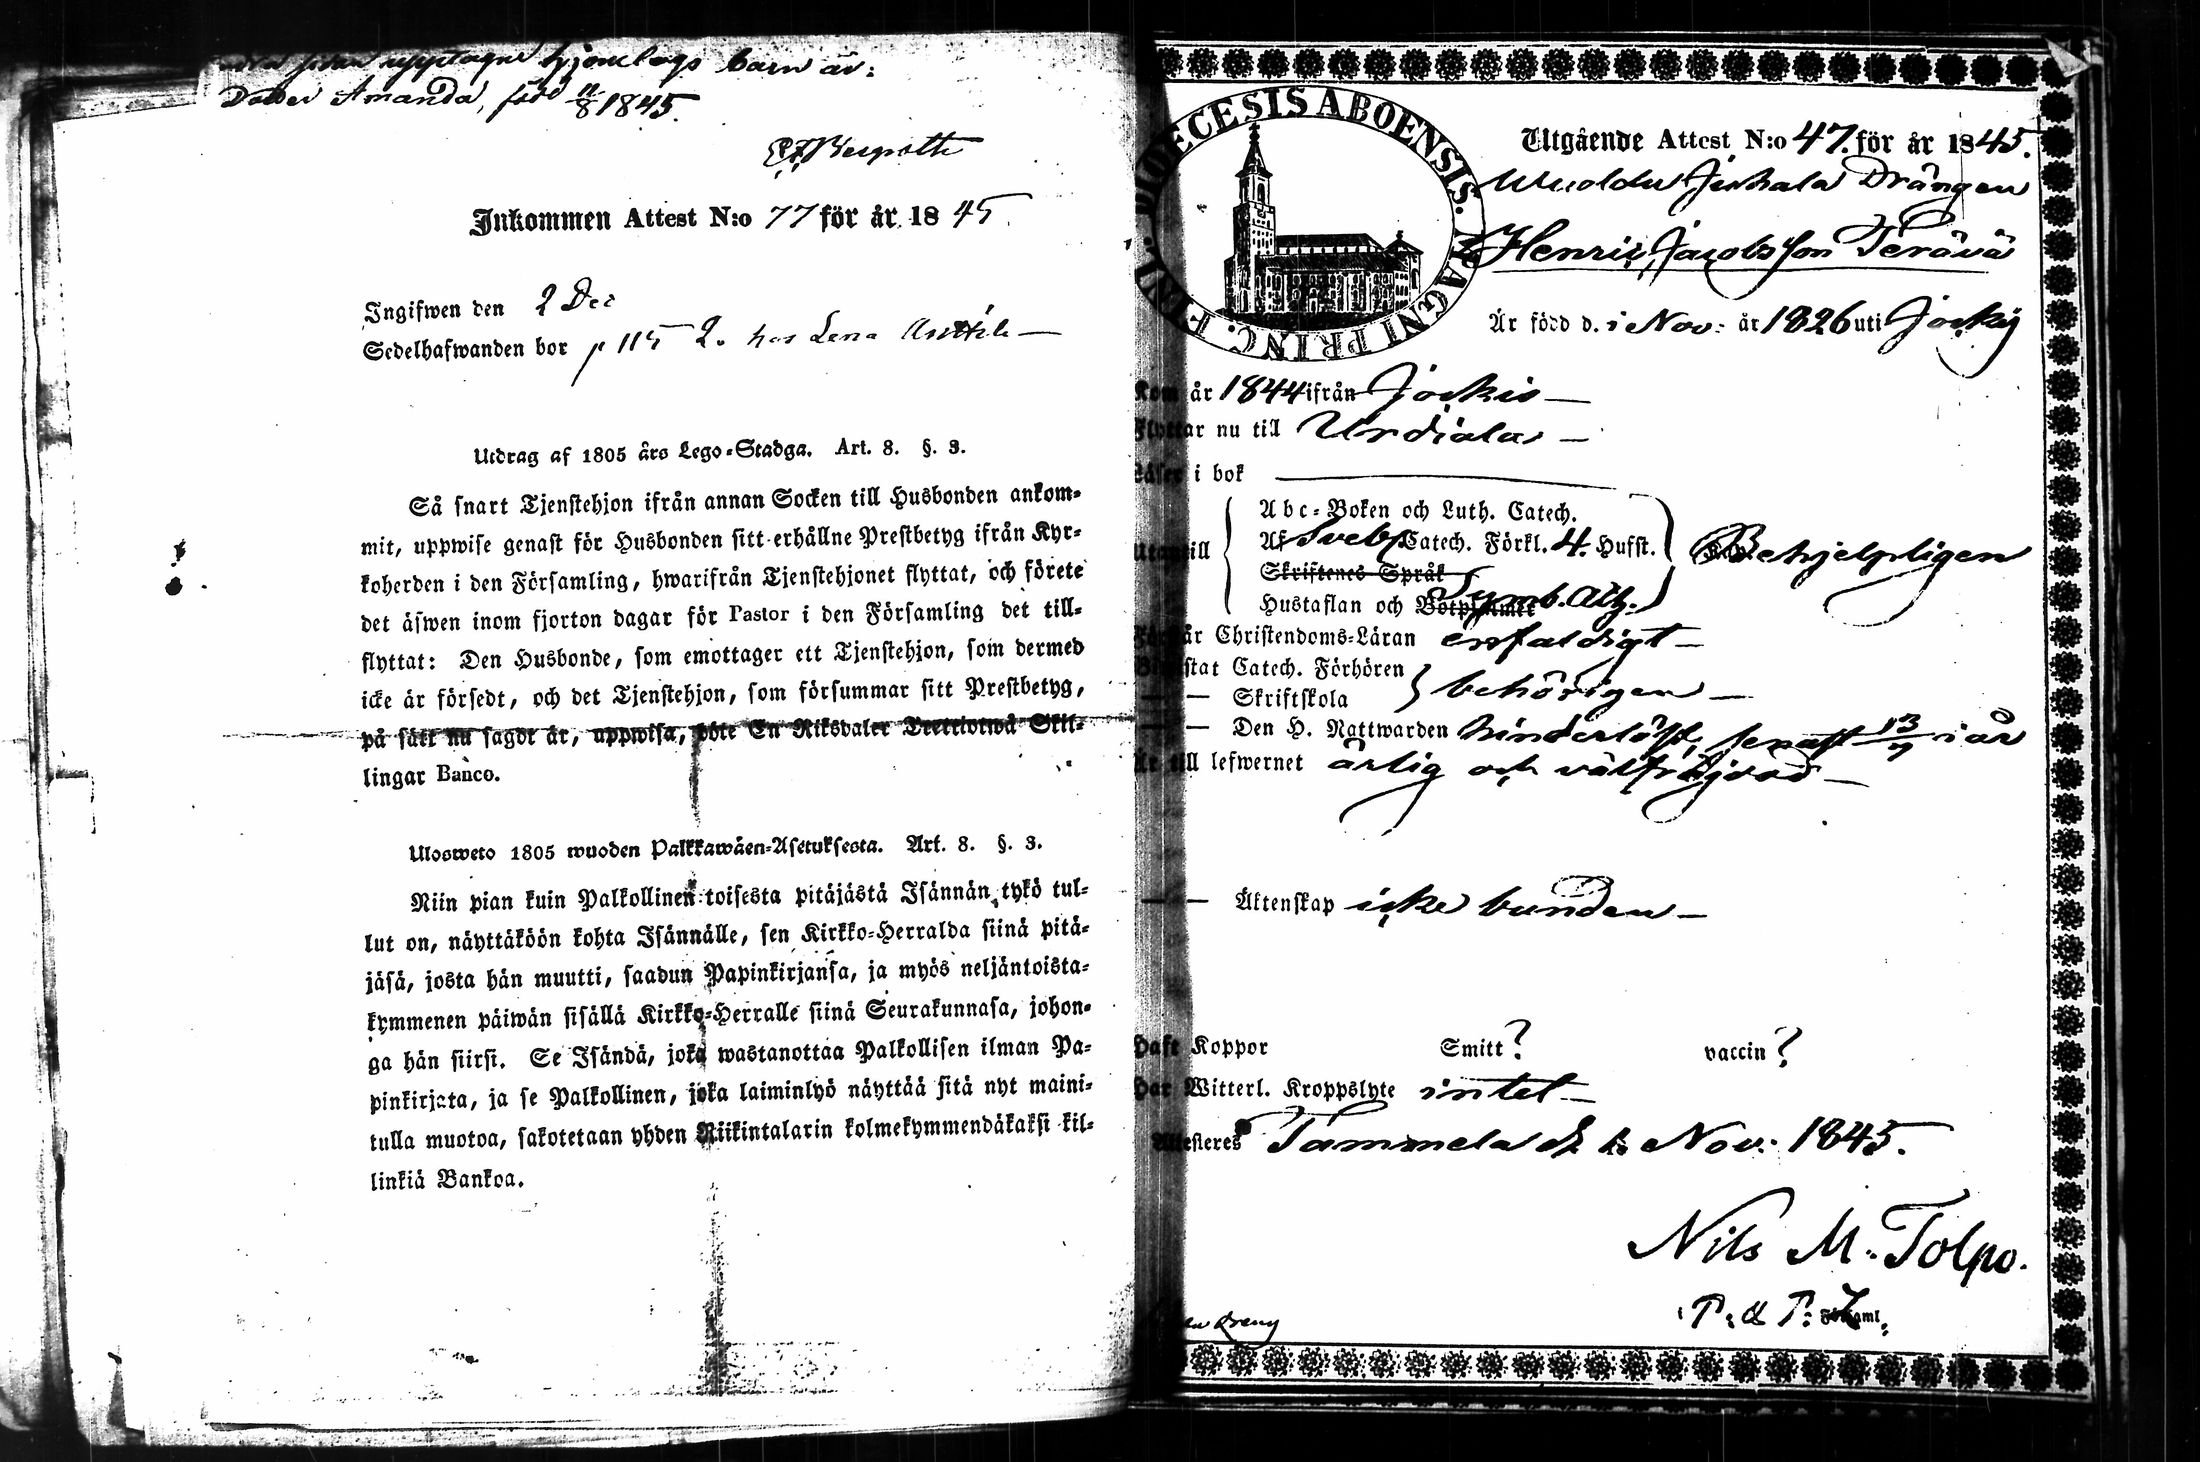 upptagne hjonelags barn är:
Dotter Amanda, född 11/8 1845.
Bergroth
Inkommen Attest N:o 77 för år 1845
Ingifwen den 2 Dec
Sedelhafwanden bor p 115 2. hos Lena Anttila —
Utdrag af 1805 års Lego-Stadga. Art. 8. §. 3.
Så snart Tjenstehjon ifrån annan Socken till Husbonden ankom-
mit, uppwise genast för Husbonden sitt erhållne Prestbetyg ifrån Kyr-
koherden i den Församling, hwarifrån Tjenstehjonet flyttat, och förete
det äfwen inom fjorton dagar för Pastor i den Församling det till-
flyttat: Den Husbonde, som emottager ett Tjenstehjon, som dermed
icke är försedt, och det Tjenstehjon, som försummar sitt Prestbetyg,
på sätt nu sagdt är, uppwisa, böte En Riksdaler Trettiotwå Skil-
lingar Banco.
Ulosweto 1805 wuoden Palkkawäen-Asetuksesta. Art. 8. §. 3.
Niin pian kuin Palkollinen toisesta pitäjästä Isännän tykö tul-
lut on, näyttäköön kohta Isännälle, sen Kirkko-Herralda siinä pitä-
jäsä, josta hän muutti, saadun Papinkirjansa, ja myös neljäntoista-
kymmenen päiwän sisällä Kirkko-Herralle siinä Seurakunnasa, johon-
ga hän siirsi. Se Isändä, joka wastanottaa Palkollisen ilman Pa-
pinkirjata, ja se Palkollinen, joka laiminlyö näyttää sitä nyt maini-
tulla muotoa, sakotetaan yhden Riikintalarin kolmekymmendäkaksi kil-
linkiä Bankoa.
DIOECESIS ABOENSIS. MAGNI PRINC. FINL.
Utgående Attest N:o 47. för år 1845.
Jokala Drängen
Henric Jacobsson Terävä
Är född d. i Nov: år 1826 uti Jockis
Kom år 1844 ifrån Jockis —
Flyttar nu till Urdiala —
Läser i bok
Abc-Boken och Luth. Catech.
Utantill Af Sveb. Catech. Förkl. 4. Hufst. Behjelpligen
Skriftenes Språk
Hustaflan och Botpsalmer Symb. Ath.
Förstår Christendoms-Läran enfaldigt —
Bewistat Catech. Förhören
— — Skriftskola behörigen —
— — Den H. Nattwarden hinderlöst, senast 13/7 i år
Är till lefwernet ärlig och välfräjdad —
— — Äktenskap icke bunden —
Haft Koppor Smitt? vaccin?
Har Witterl. Kroppslyte intet —
Attesteres Tammela d. Nov: 1845.
Nils M. Tolpo.
P: & P: i Församl.